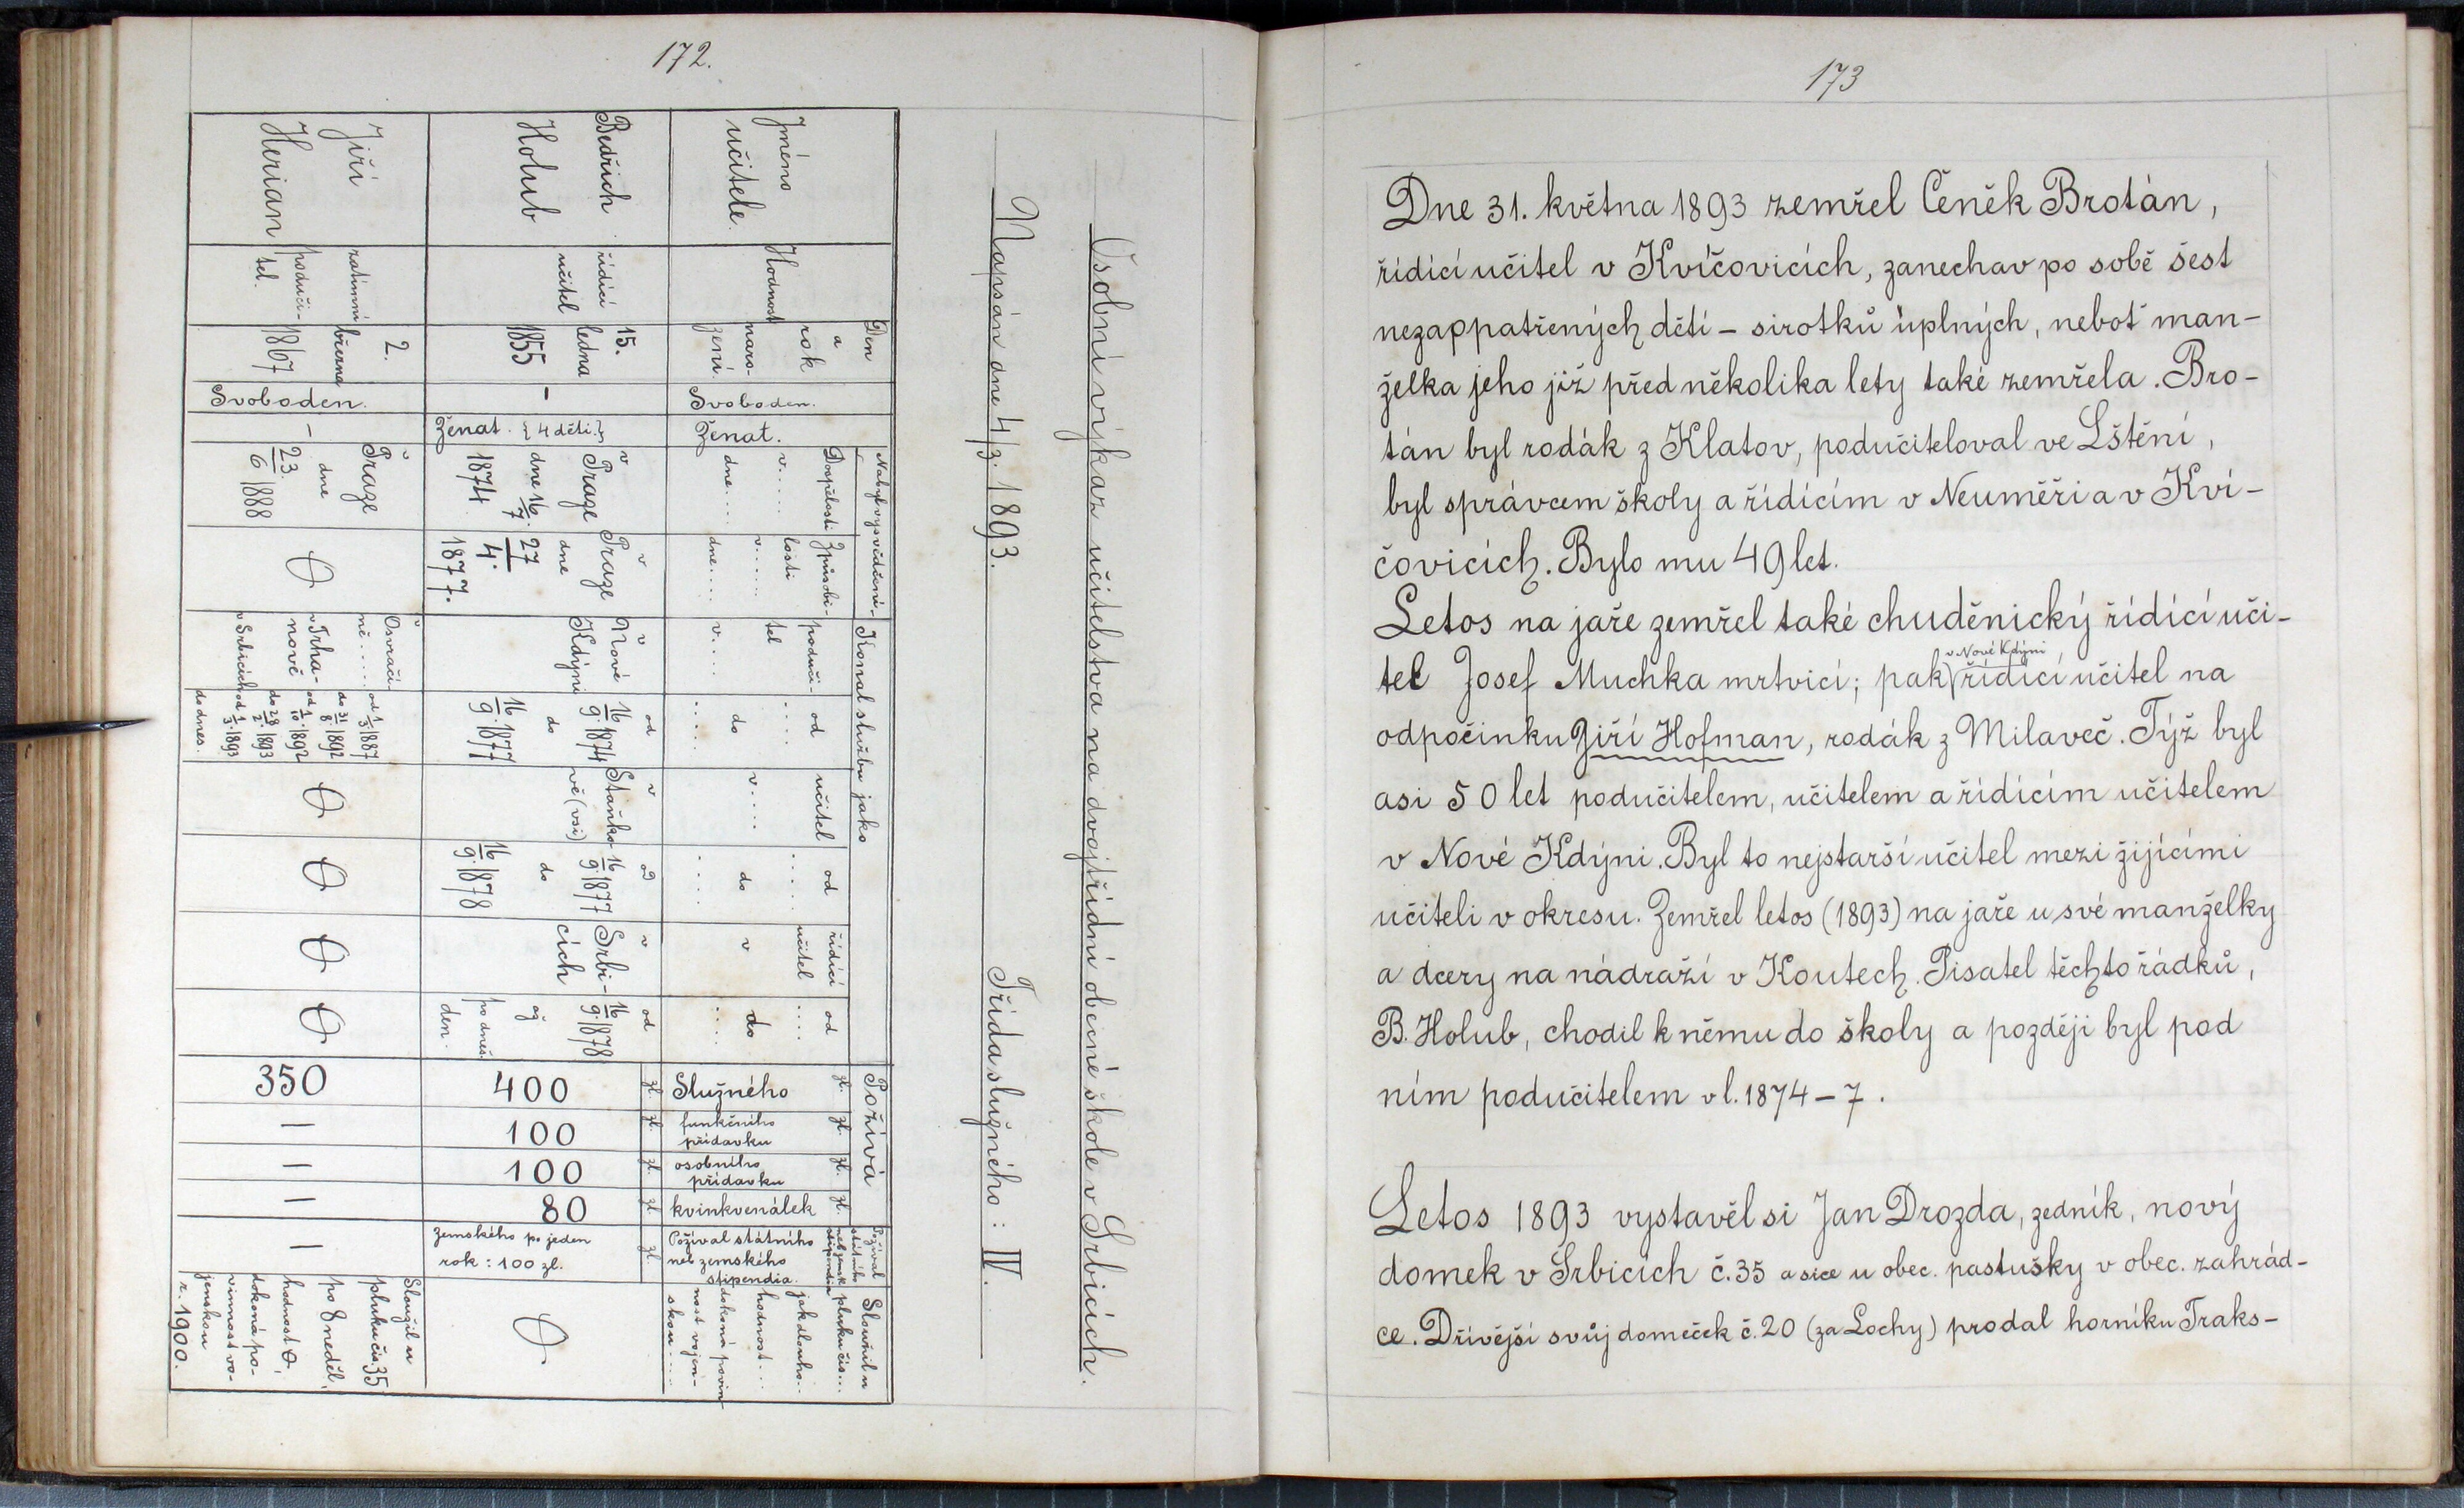 172.
Osobní výkaz učitelstva na dvojtřídní obecné škole v Srbicích.
Napsán dne 4/3. 1893. Třída služného: IV.
Jméno
učitele.
Hodnost
Den
a
rok
naro-
zení.
Svoboden.
Ženat.
Nabyl vysvědčení
Dospělosti
v.....
dne....
Způsobi-
losti
v.....
dne....
Konal službu jako
podučí-
tel
v....
od
....
do
....
učitel
v....
od
....
do
....
řídící
učitel
v
od
....
do
....
Požívá
Služného
zl.
funkčního
přídavku
zl.
osobního
přídavku
zl.
kvinkvenálek
zl.
Požíval
státního
neb zemsk.
stipendia
Požíval státního
neb zemského
stipendia.
Sloužil u
pluku čís...
jak dlouho..
hodnost...
dokoná povin
nost vojen-
skou.....
Bedřich
Holub
řídící
učitel
15.
ledna
1855
–
Ženat. {4 děti.}
v
Praze
dne 16/7
1874.
v
Praze
dne
27/4.
1877.
v
Nové
Kdýni
od
16/9. 1874
do
16/9. 1877
v
Staňko-
vě (vsi)
od
16/9. 1877
do
16/9. 1878
v
Srbi-
cích
od
16/9. 1878
až
po dneš.
den.
zl. 400
zl. 100
zl. 100
zl. 80
zl. zemského po jeden
rok: 100 zl.
Jiří
Herian
zatímní
poduči-
tel.
2.
března
1867
Svoboden.
–
v
Praze
dne
23./6 1888
v
Osvrači-
ně.....
v Trha-
nově
v Srbicích
od 1/3 1887
do 31/8. 1892
od 1/10. 1892
do 28/2. 1893
od 1/3. 1893
do dnes.
350
–
–
–
–
Sloužil u
pluku čís. 35
po 8 neděl,
hodnost 0,
dokoná po-
vinnost vo-
jenskou
r. 1900.
173
Dne 31. května 1893 zemřel Čeněk Brotán,
řídící učitel v Kvíčovicích, zanechav po sobě šest
nezaopatřených dětí – sirotků úplných, neboť man-
želka jeho již před několika lety také zemřela. Bro-
tán byl rodák z Klatov, podučiteloval ve Lštění,
byl správcem školy a řídícím v Neuměři a v Kví-
čovicích. Bylo mu 49 let.
Letos na jaře zemřel také chuděnický řídící uči-
tel Josef Muchka mrtvicí; pak v Nové Kdýni řídící učitel na
odpočinku Jiří Hofman, rodák z Milaveč. Týž byl
asi 50 let podučitelem, učitelem a řídícím učitelem
v Nové Kdýni. Byl to nejstarší učitel mezi žijícími
učiteli v okresu. Zemřel letos (1893) na jaře u své manželky
a dcery na nádraží v Koutech. Pisatel těchto řádků,
B. Holub, chodil k němu do školy a později byl pod
ním podučitelem v l. 1874–7.
Letos 1893 vystavěl si Jan Drozda, zedník, nový
domek v Srbicích č. 35 a sice u obec. pastušky v obec. zahrád-
ce. Dřívější svůj domeček č. 20 (za Lochy) prodal horníku Traks-